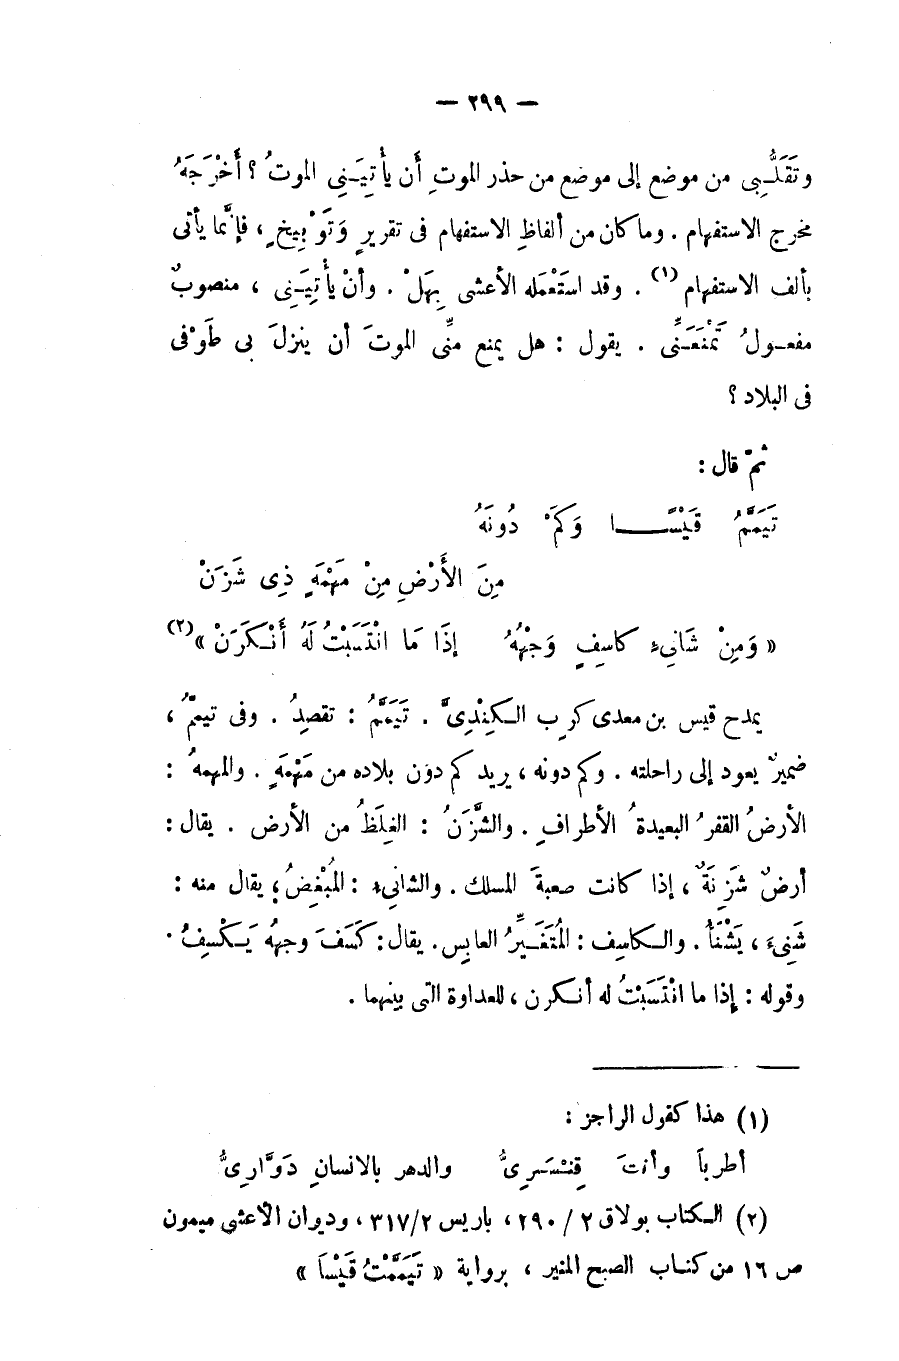 — ٢٩٩ —
وتَقَلُّبِى من موضع إلى موضع من حذر الموتِ أَن يأْتِيَنِى الموتُ ؟ أَخْرَجَهُ
مخرج الاستفهام . وما كان من ألفاظِ الاستفهام فى تقريرٍ وَتَوْبِيخٍ ، فإنَّما يأتى
بألف الاستفهام (١) . وقد استَعْمَله الأعشى بِهَلْ . وأنْ يأْتِيَنِى ، منصوبٌ
مفعولُ تَمْنَعَنِّى . يقول : هل يمنع منِّى الموتَ أن ينزلَ بى طَوْفى
فى البلاد ؟
ثمّ قال :
تَيَمَّمُ قَيْسًا وَكَمْ دُونَهُ
مِنَ الأَرْضِ مِنْ مَهْمَهٍ ذِى شَزَنْ
« وَمِنْ شَانِىءٍ كاسِفٍ وَجْهُهُ إذَا مَا انْتَسَبْتُ لَهُ أَنْكَرَنْ »(٢)
يمدح قيس بن معدى كرِب الكِنْدِىَّ . تَيَمَّمُ : تقصِدُ . وفى تيممُّ ،
ضميرٌ يعود إلى راحلته . وكم دونه ، يريد كم دون بلاده من مَهْمَهٍ . والمهمهُ :
الأرضُ القفرُ البعيدةُ الأطرافِ . والشَّزَنُ : الغِلَظُ من الأرض . يقال :
أرضٌ شَزِنَةٌ ، إذا كانت صعبةَ المسلك . والشانِىء : المُبْغِضُ ؛ يقال منه :
شَنِىءَ ، يَشْنَأُ . والكاسِف : المُتَغَيِّرُ العابِس . يقال : كَسَفَ وجهُه يَكْسِفُ .
وقوله : إذا ما انْتَسَبْتُ له أنكرن ، للعداوة التى بينهما .
(١) هذا كقول الراجز :
أطرباً وأنتَ قِنَّسْرِىُّ والدهر بالانسانِ دَوَّارِىُّ
(٢) الكتاب بولاق ٢ / ٢٩٠ ، باريس ٣١٧/٢ ، وديوان الأعشى ميمون
ص ١٦ من كتاب الصبح المنير ، برواية « تَيَمَّمْتُ قَيْسًا »